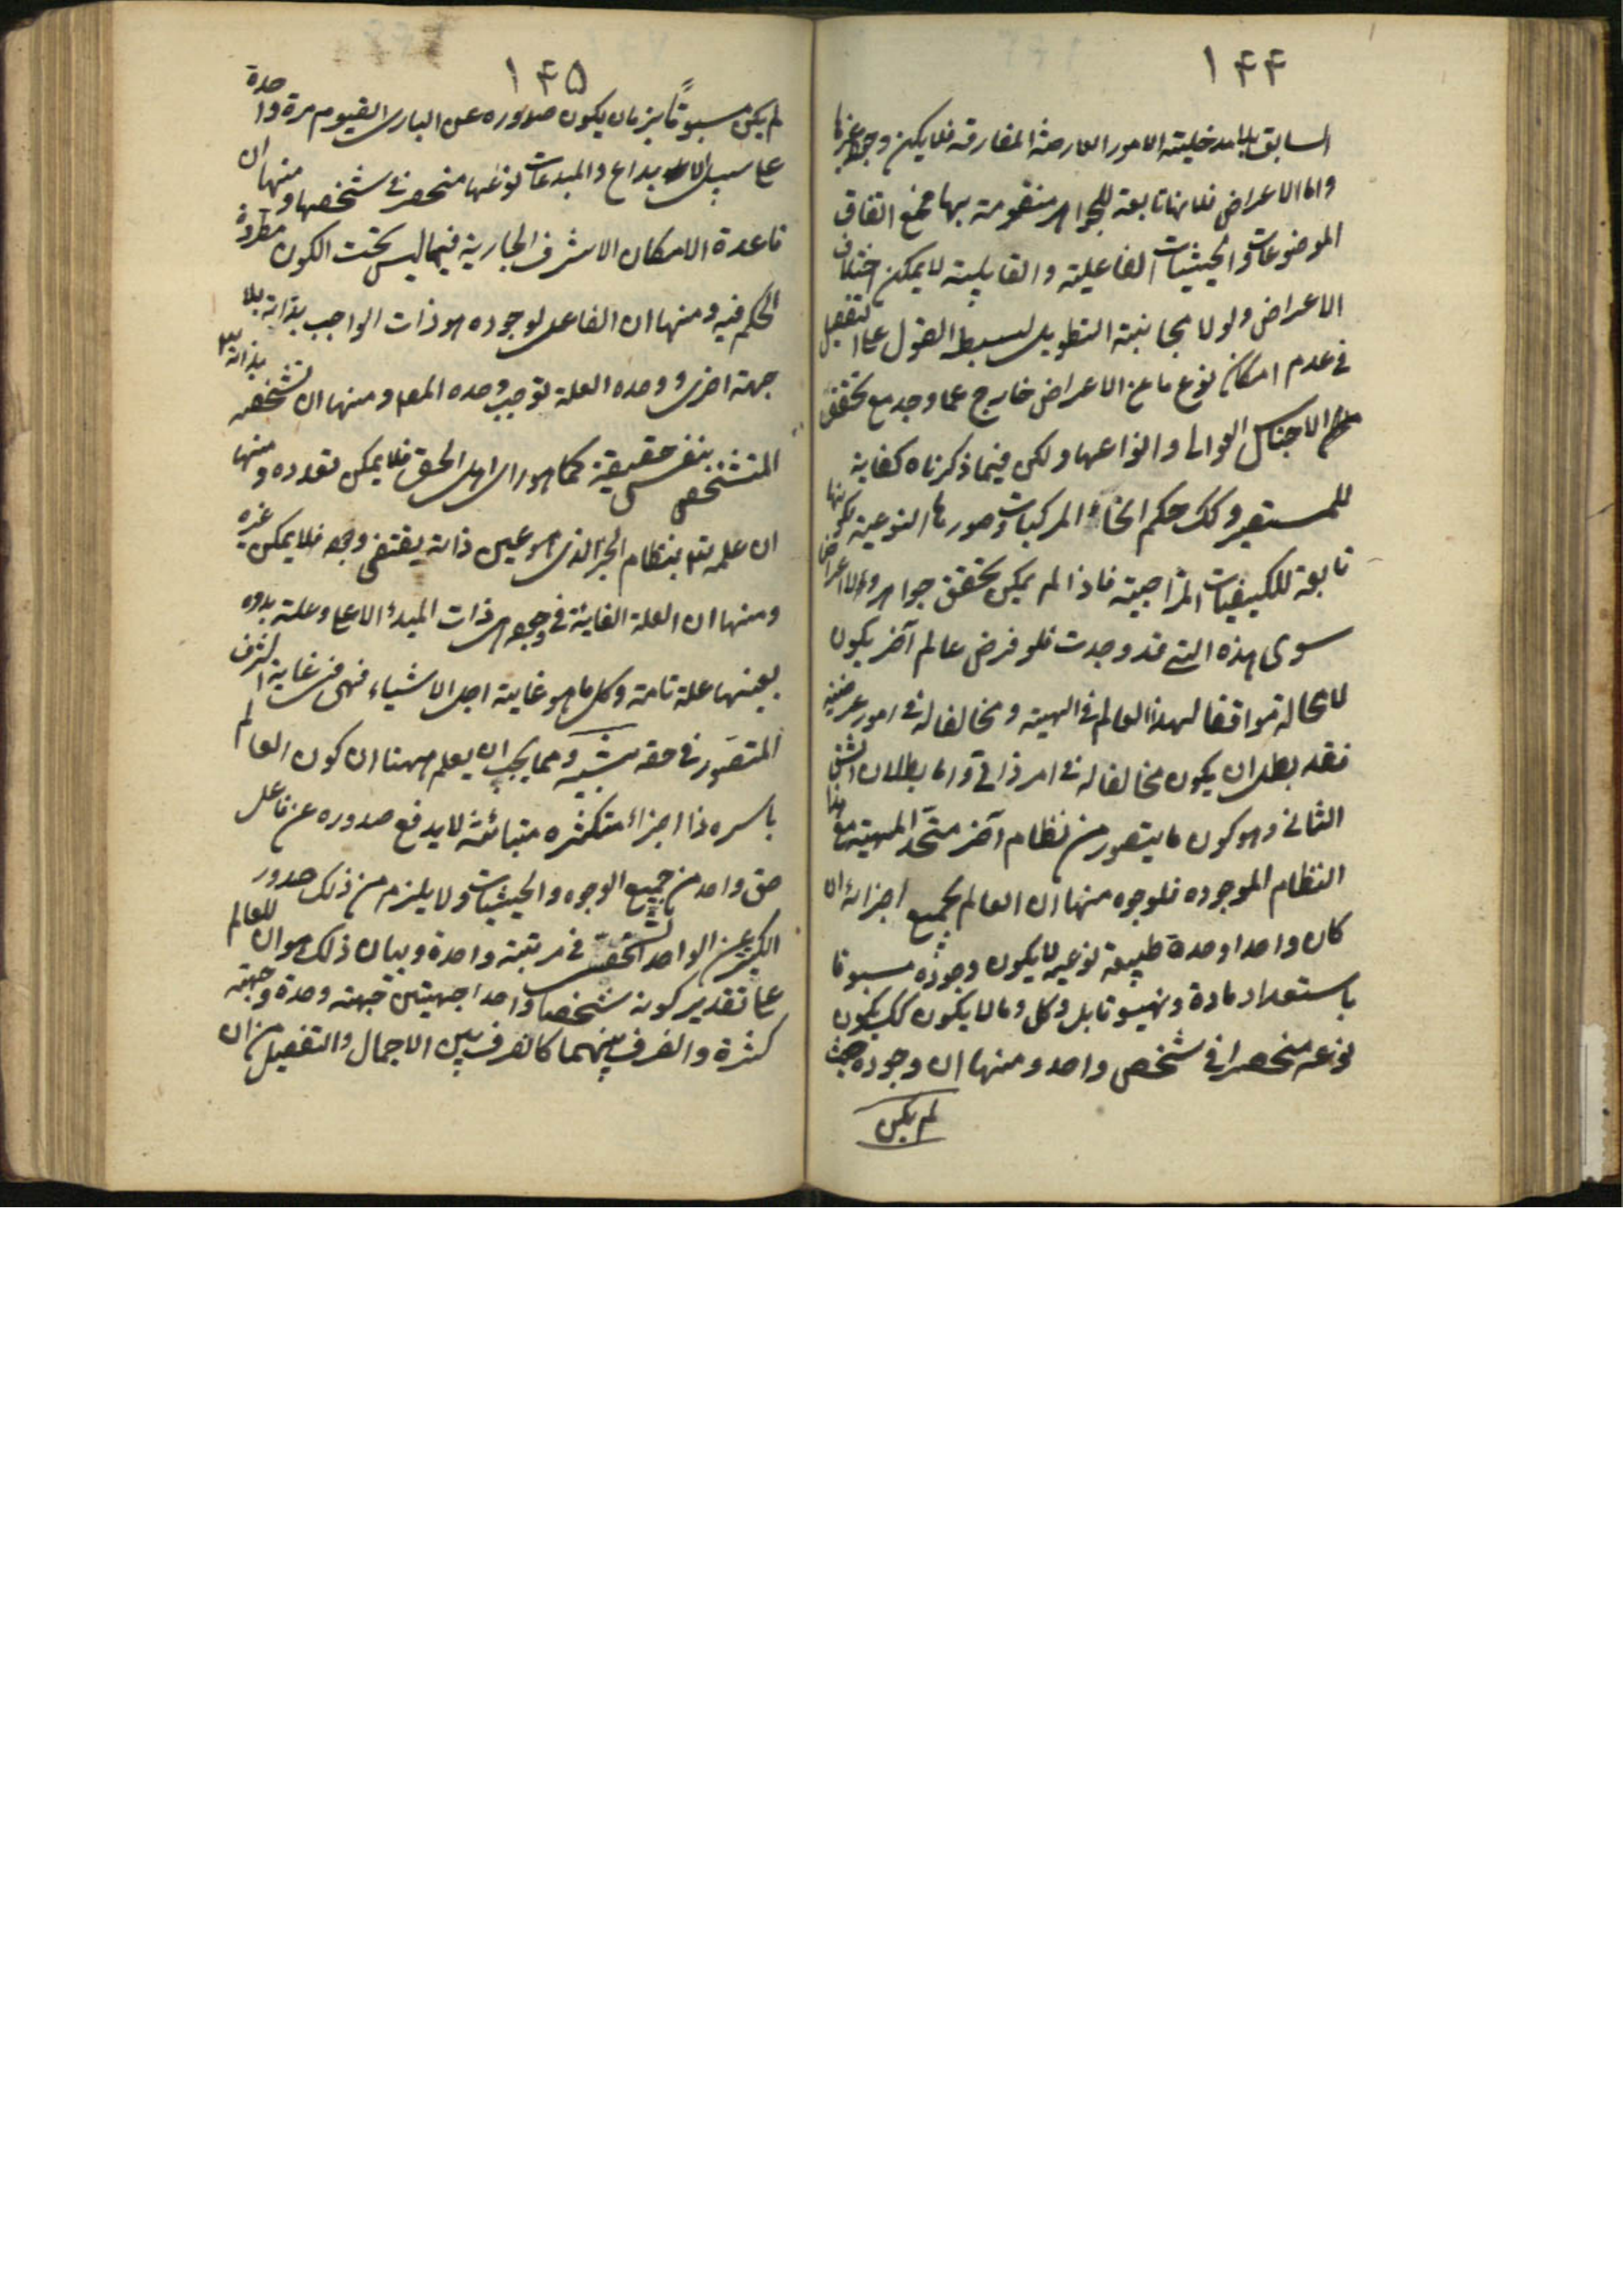 ١٤٤
السابق بلا مدخلية الامور العارضة المفارقة فلا يكن وجود غيرها
واما الاعراض فلانها تابعة للجواهر متقومة بها فمع اتفاق
الموضوعات والحيثيات الفاعلية والقابلية لا يمكن اختلاف
الاعراض ولولا مجانبة التطويل لبسيط القول على التفصيل
في عدم امكان نوع ما من الاعراض خارج عما وجد مع تحقق
الاجناس العوالى وانواعها ولكن فيما ذكرناه كفاية
للمستبصر وكك حكم انحاء المركبات وصورها النوعية لكونها
تابعة للكيفيات المزاجية فاذا لم يمكن تحقق جواهر واعراض
سوى هذه التى قد وجدت فلو فرض عالم آخر يكون
لا محالة موافقا لهذا العالم في المهية ومخالفا له في امور عرضية
فقد بطل ان يكون مخالفا له في امر ذاتى واما بطلان الشق
الثانى وهو كون ما يتصور من نظام آخر متحد المهية مع هذا
النظام الموجوده فلوجوه منها ان العالم بجميع اجزائه لما
كان واحدا وحدة طبيعة نوعيه لا يكون وجوده مسبوقا
باستعداد مادة وتهيؤ قابل وكل ما لا يكون كك يكون
نوعه منحصرا في شخص واحد ومنها ان وجوده حيث
لم يكن
١٤٥
لم يكن مسبوقاً بزمان يكون صدوره عن البارى القيوم مرة واحدة
على سبيل الابداع والمبدعات نوعها منحصر في شخصها ومنها ان
قاعدة الامكان الاشرف الجارية فيما ليس تحت الكون مطردة
الحكم فيه ومنها ان الفاعل لوجوده هو ذات الواجب بذاته بلا
جهة اخرى ووحده العلة توجب وحده المعلم ومنها ان تشخصه بذاته
المتشخص بنفس حقيقة كما هو راى اهل الحق فلا يمكن تعدده ومنها
ان علمه تع بنظام الخير الذى هو عين ذاته يقتضى وجوده فلا يمكن غيره
ومنها ان العلة الغائية في وجوده هى ذات المبدء الاعلى وعلة بدوه
بعينها علة تامة وكل ما هو غاية اجل الاشياء فهى في غاية الشرف
المتصور في حقه تنبيه ومما يجب ان يعلم ههنا ان كون العالم
باسره ذا اجزاء متكثره متبائنة لا يدفع صدوره عن فاعل
حق واحد من جميع الوجوه والحيثيات ولا يلزم من ذلك صدور
الكثير عن الواحد الحق في مرتبة واحدة وبيان ذلك هو ان للعالم
على تقدير كونه شخصا واحدا جهتين جهة وحدة وجهة
كثرة والفرق بينهما كالفرق بين الاجمال والتفصيل من ان